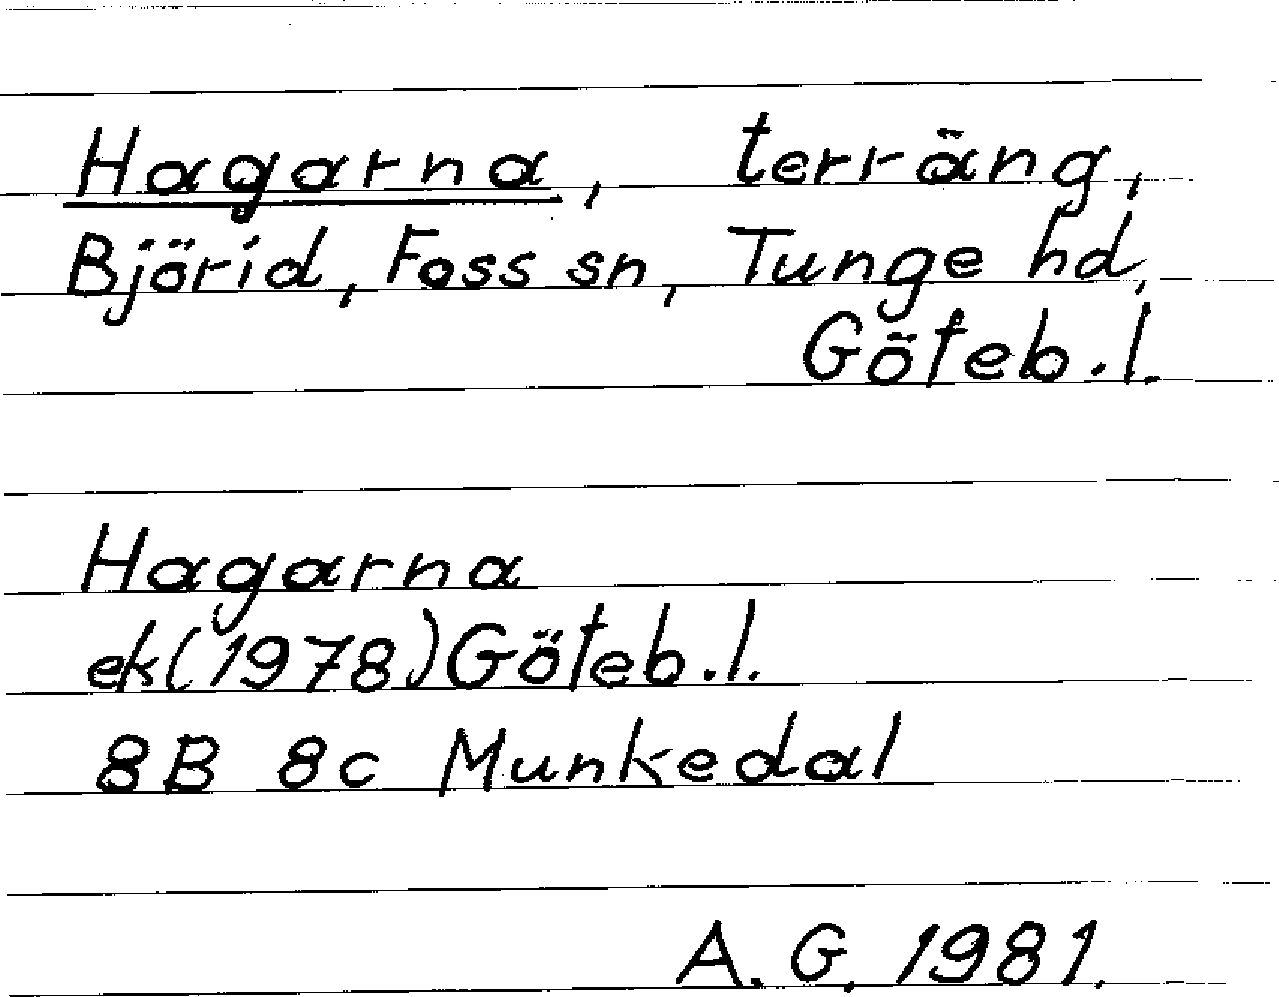 Hagarna, terräng,
Björid, Foss sn, Tunge hd,
Göteb.l.
Hagarna
ek(1978)Göteb.l.
8B 8c Munkedal
A.G. 1981.